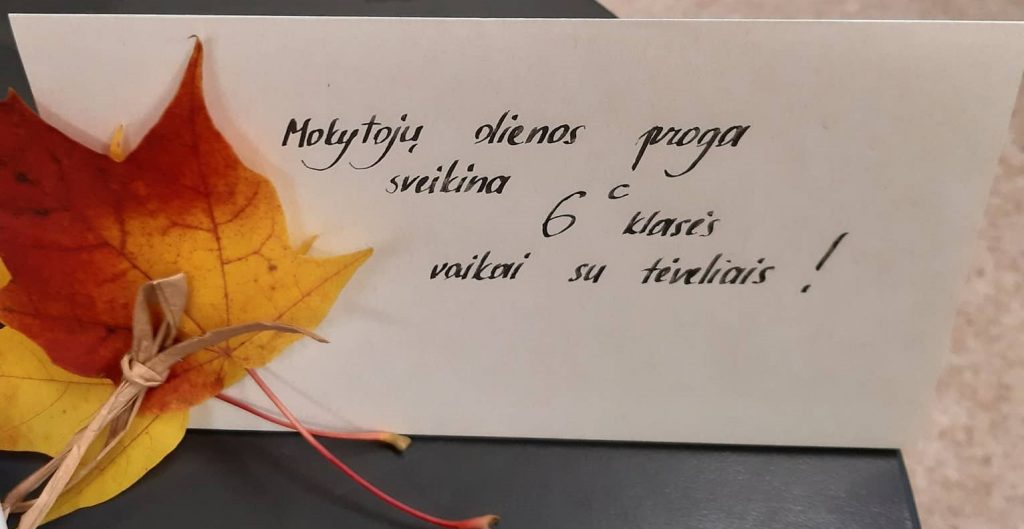 Mokytojų dienos proga
sveikina
6 c klasės
vaikai su tėveliais !